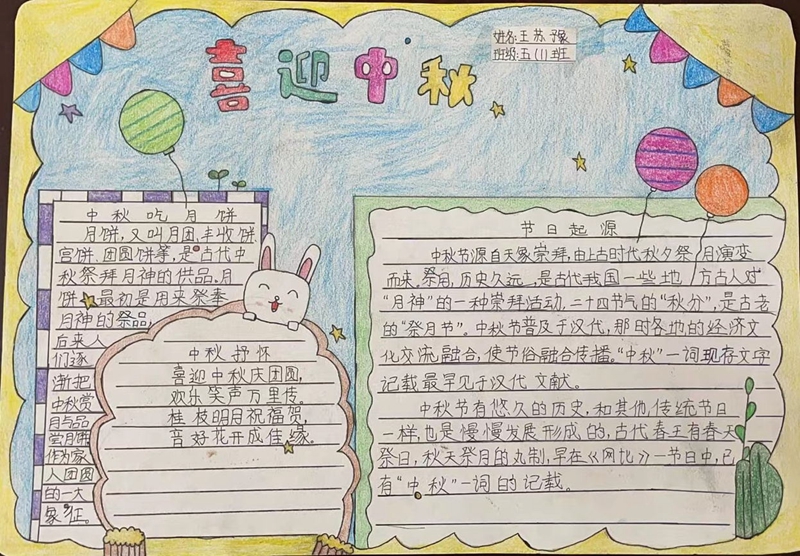 喜迎中秋
姓名:王苏豫
班级:五(1)班
中秋吃月饼
月饼,又叫月团、丰收饼、
宫饼、团圆饼等,是古代中
秋祭拜月神的供品。月
饼最初是用来祭奉
月神的祭品,
后来人
们逐
渐把
中秋赏
月与品
尝月饼
作为家
人团圆
的一大
象征。
中秋抒怀
喜迎中秋庆团圆,
欢乐笑声万里传。
桂枝明月祝福贺,
音好花开成佳缘。
节日起源
中秋节源自天象崇拜,由上古时代秋夕祭月演变
而来。祭月,历史久远,是古代我国一些地方古人对
“月神”的一种崇拜活动,二十四节气的“秋分”,是古老
的“祭月节”。中秋节普及于汉代,那时各地的经济文
化交流融合,使节俗融合传播。“中秋”一词现存文字
记载最早见于汉代文献。
中秋节有悠久的历史,和其他,传统节日
一样,也是慢慢发展形成的,古代春王有春天
祭日,秋天祭月的丸制,早在《网比》一节日中,已
有“中秋”一词的记载。